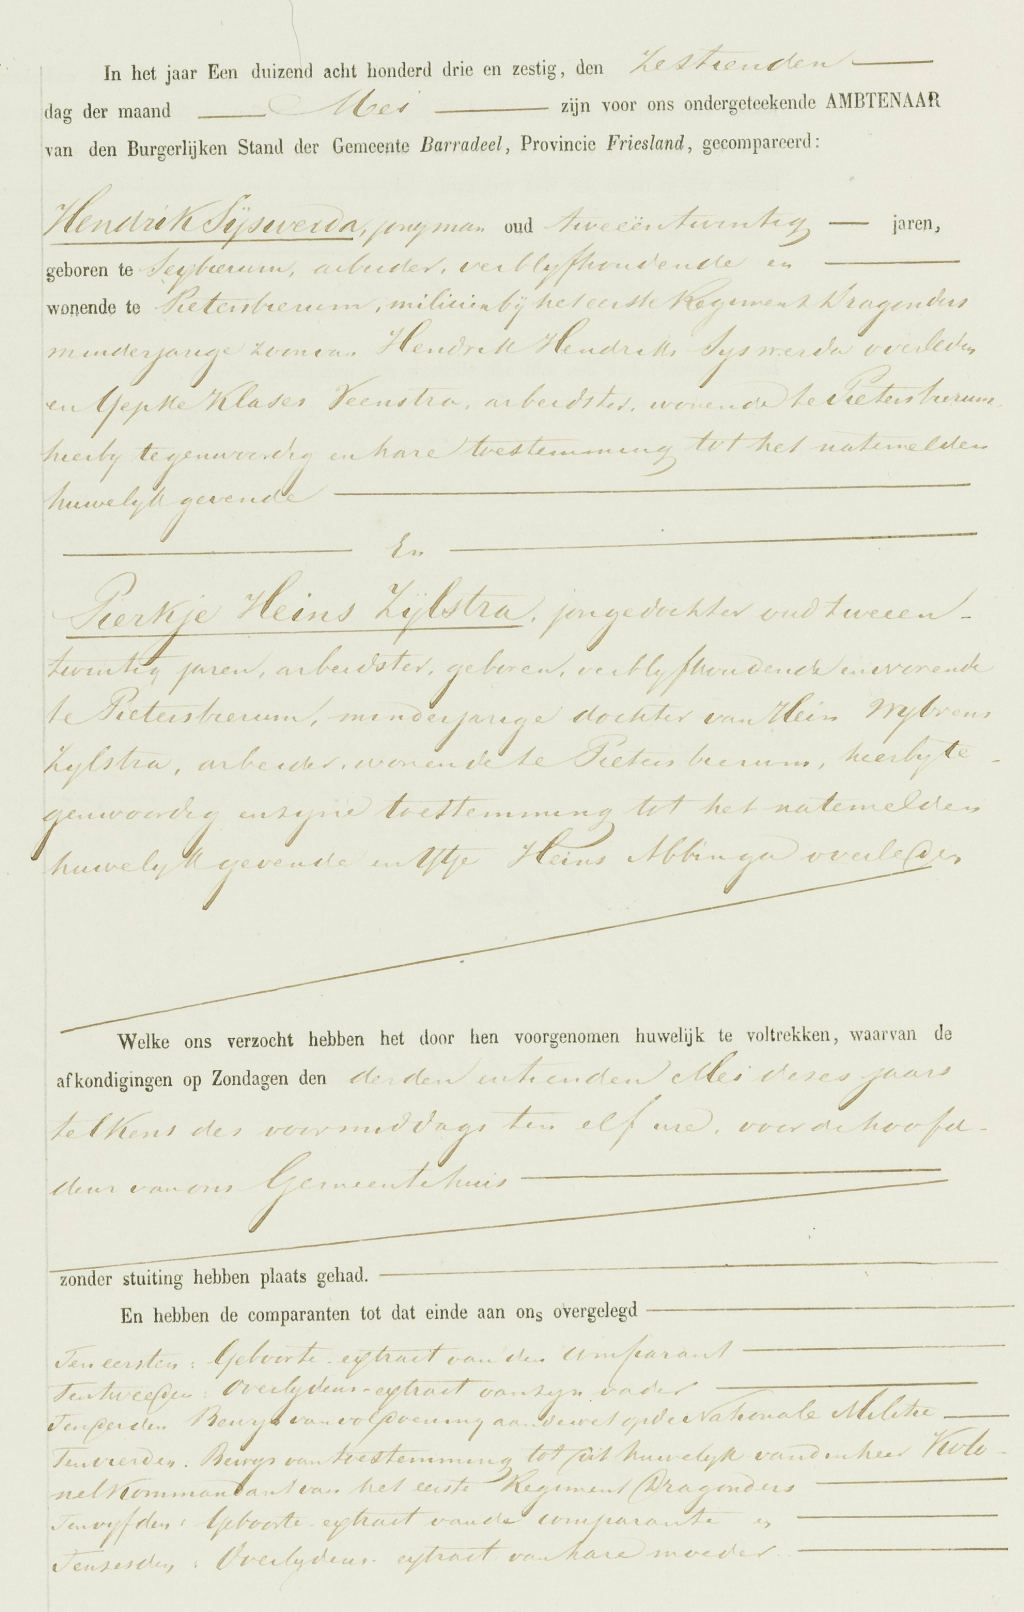 In het jaar Een duizend acht honderd drie en zestig, den Zestienden
dag der maand Mei zijn voor ons ondergeteekende AMBTENAAR
van den Burgerlijken Stand der Gemeente Barradeel, Provincie Friesland, gecompareerd:
Hendrik Sijswerda, jongman oud tweeëntwintig jaren,
geboren te Sexbierum, arbeider, verblyfhoudende en
wonende te Pietersbierum, milicien by het eerste Regiment Dragonders
minderjarige zoon van Hendrik Hendriks Syswerda overleden
en Yepke Klases Veenstra, arbeidster, wonende te Pietersbierum,
hierby tegenwoordig en hare toestemming tot het natemelden
huwelyk gevende
En
Pierkje Heins Zijlstra, jongedochter oud tweeen-
twintig jaren, arbeidster, geboren, verblyfhoudende en wonende
te Pietersbierum, minderjarige dochter van Hein Wybrens
Zylstra, arbeider, wonende te Pietersbierum, hierby te-
genwoordig en zyne toestemming tot het natemelden
huwelyk gevende en Ytje Heins Abbinga overleden
Welke ons verzocht hebben het door hen voorgenomen huwelijk te voltrekken, waarvan de
afkondigingen op Zondagen den derden en tienden Mei dezes jaars
telkens des voormiddags ten elf ure, voor de hoofd-
deur van ons Gemeentehuis
zonder stuiting hebben plaats gehad.
En hebben de comparanten tot dat einde aan ons overgelegd
Ten eersten: Geboorte-extract van den comparant
Ten tweeden: Overlydens-extract van zyn vader
Ten derden Bewys van voldoening aan de wet op de Nationale Militie
Ten vierden. Bewys van toestemming tot dit huwelyk van den heer Kolo-
nel Kommandant van het eerste Regiment Dragonders
Ten vyfden: Geboorte-extract van de comparante en
Ten sesden: Overlydens-extract van hare moeder.